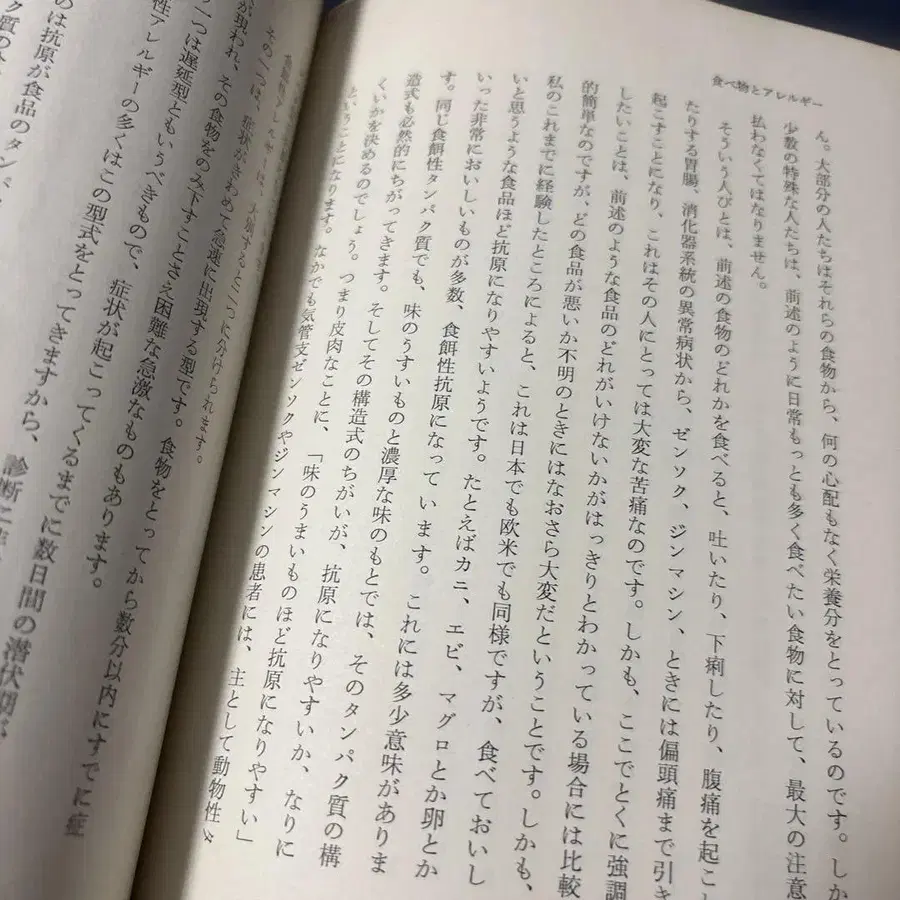 食べ物とアレルギー
ん。大部分の人たちはそれらの食物から、何の心配もなく栄養分をとっているのです。しか
少数の特殊な人たちは、前述のように日常もっとも多く食べたい食物に対して、最大の注意
払わなくてはなりません。
そういう人びとは、前述の食物のどれかを食べると、吐いたり、下痢したり、腹痛を起こし
たりする胃腸、消化器系統の異常病状から、ゼンソク、ジンマシン、ときには偏頭痛まで引き
起こすことになり、これはその人にとっては大変な苦痛なのです。しかも、ここでとくに強調
したいことは、前述のような食品のどれがいけないかがはっきりとわかっている場合には比較
的簡単なのですが、どの食品が悪いか不明のときにはなおさら大変だということです。しかも、
私のこれまでに経験したところによると、これは日本でも欧米でも同様ですが、食べておいし
いと思うような食品ほど抗原になりやすいようです。たとえばカニ、エビ、マグロとか卵とか
いった非常においしいものが多数、食餌性抗原になっています。これには多少意味がありま
す。同じ食餌性タンパク質でも、味のうすいものと濃厚な味のもとでは、そのタンパク質の構
造式も必然的にちがってきます。そしてその構造式のちがいが、抗原になりやすいか、なりに
くいかを決めるのでしょう。つまり皮肉なことに、「味のうまいものほど抗原になりやすい」
ということになります。なかでも気管支ゼンソクやジンマシンの患者には、主として動物性
その一つは、症状がきわめて急速に出現する型です。食物をとってから数分以内にすでに症
が現われ、その食物をのみ下すことさえ困難な急激なものもあります。
一つは遅延型ともいうべきもので、症状が起こってくるまでに数日間の潜伏期が
性アレルギーの多くはこの型式をとってきますから、診断に
のは抗原が食品のタンパ